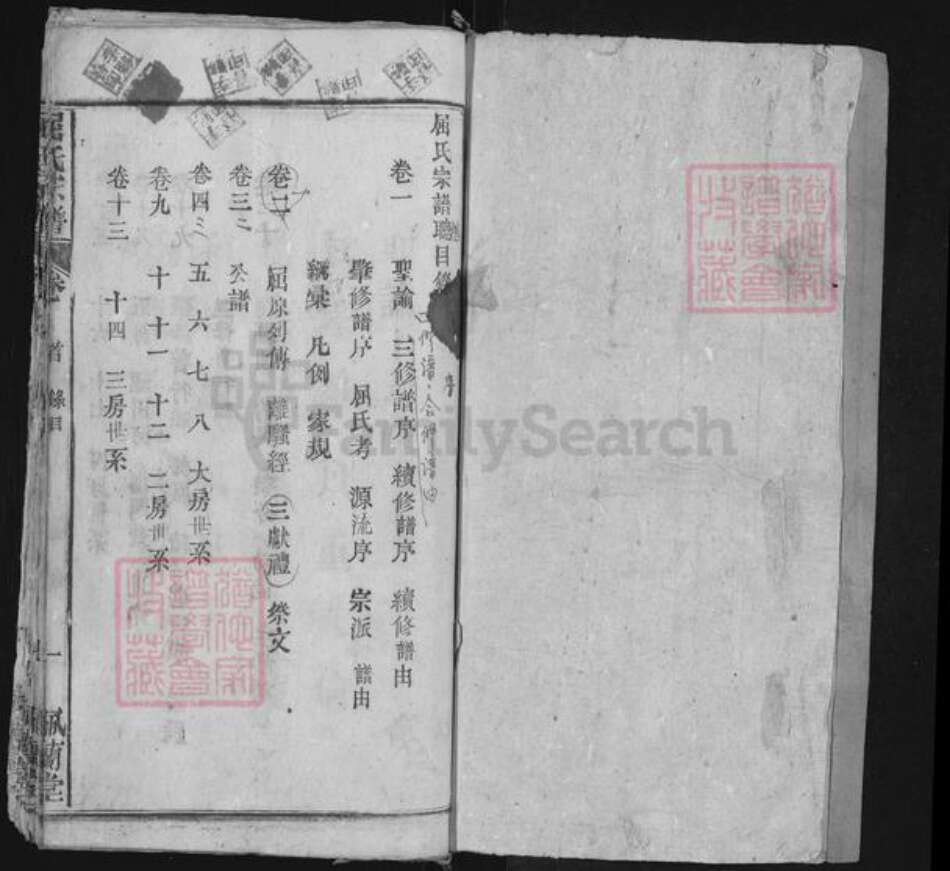 屈氏宗譜總目錄
卷一 聖諭 三修譜序 續修譜序 續修譜由
肇修譜序 屈氏考 源流序 宗派 譜由
凡例 家規
卷二 屈原列傳 離騷經 三獻禮 祭文
卷三 公譜
卷四 五 六 七 八 大房世系
卷九 十 十一 十二 二房世系
卷十三 十四 三房世系
屈氏宗譜 卷一 首 錄目 一 佩蘭堂
FamilySearch